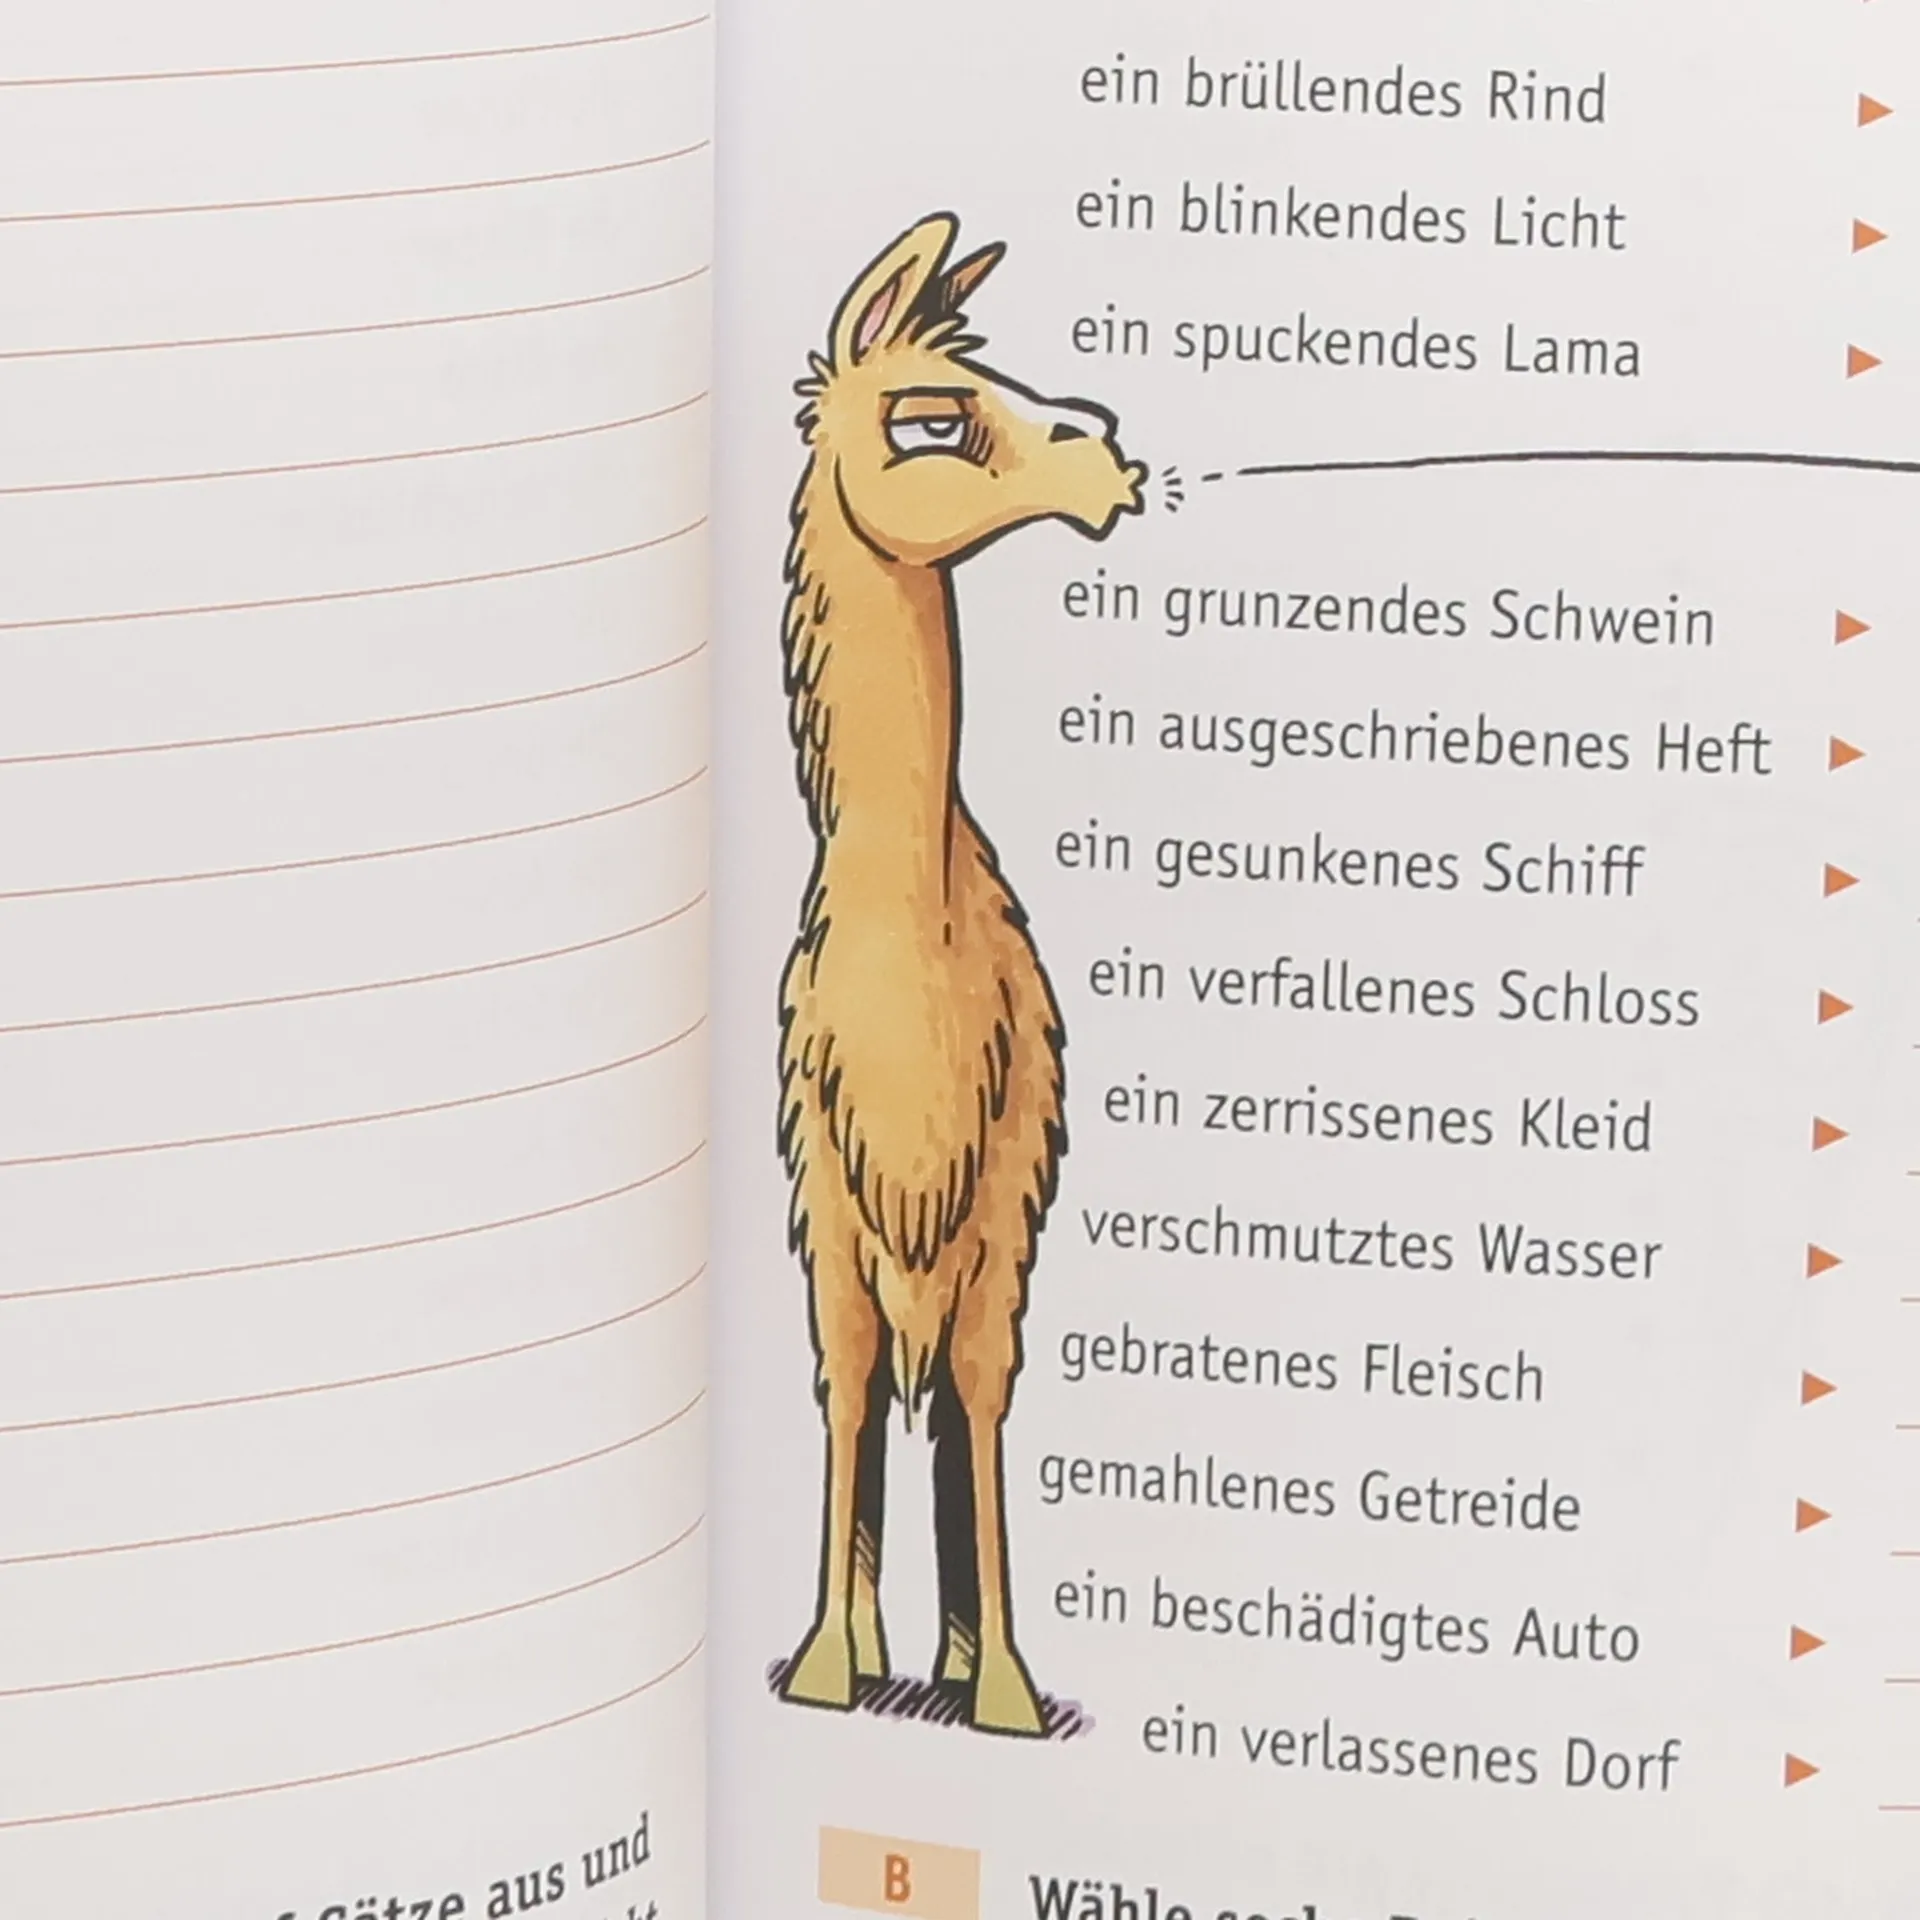 ein brüllendes Rind
ein blinkendes Licht
ein spuckendes Lama
ein grunzendes Schwein
ein ausgeschriebenes Heft
ein gesunkenes Schiff
ein verfallenes Schloss
ein zerrissenes Kleid
verschmutztes Wasser
gebratenes Fleisch
gemahlenes Getreide
ein beschädigtes Auto
ein verlassenes Dorf
Sätze aus und
B Wähle